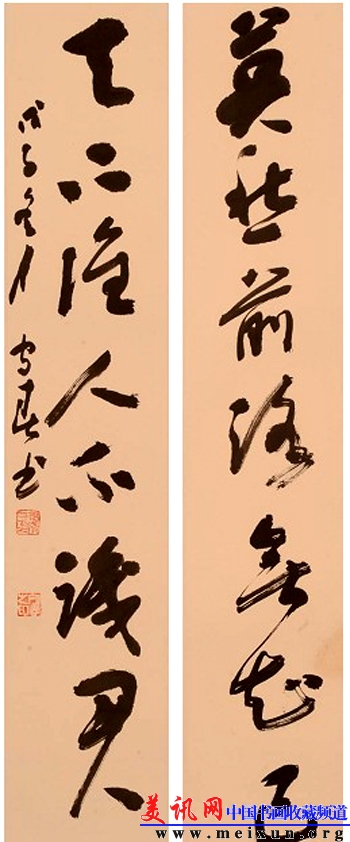 莫愁前路無知己
天下誰人不識君
戊子冬月 守真書
美讯网 中国书画收藏频道
www.meixun.org